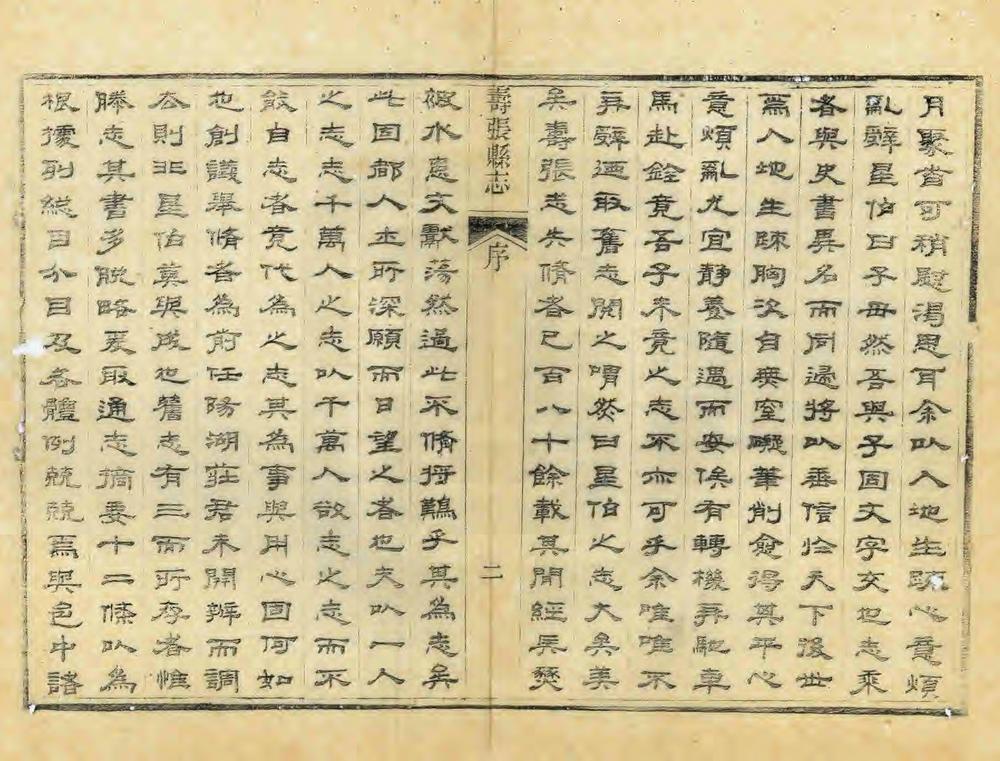 月聚首可稍慰渴思耳余以人地生疏心意煩
亂辭星伯曰子毋然吾與子固文字交也志乘
者與史書異名而同歸將以垂信於天下後世
爲人地生疎胸次自無窒礙筆削愈得其平心
意煩亂尤宜靜養隨遇而安俟有轉機再馳車
馬赴銓竟吾子未竟之志不亦可乎余唯唯不
再辭迺取舊志閱之喟然曰星伯之志大矣美
矣壽張志失脩者已百八十餘載其間經兵燹
被水患文獻蕩然過此不脩將難乎其爲志矣
此固都人士所深願而日望之者也夫以一人
之志志千萬人之志以千萬人欲志之志而不
能自志者竟代爲之志其爲事與用心固何如
也創議舉脩者爲前任陽湖莊君未開辦而調
去則非星伯莫與成也舊志有三而所存者惟
滕志其書多脫略爰取通志摘要十二條以爲
根據列總目分目及各體例兢兢焉與邑中諸
壽張縣志
序
二